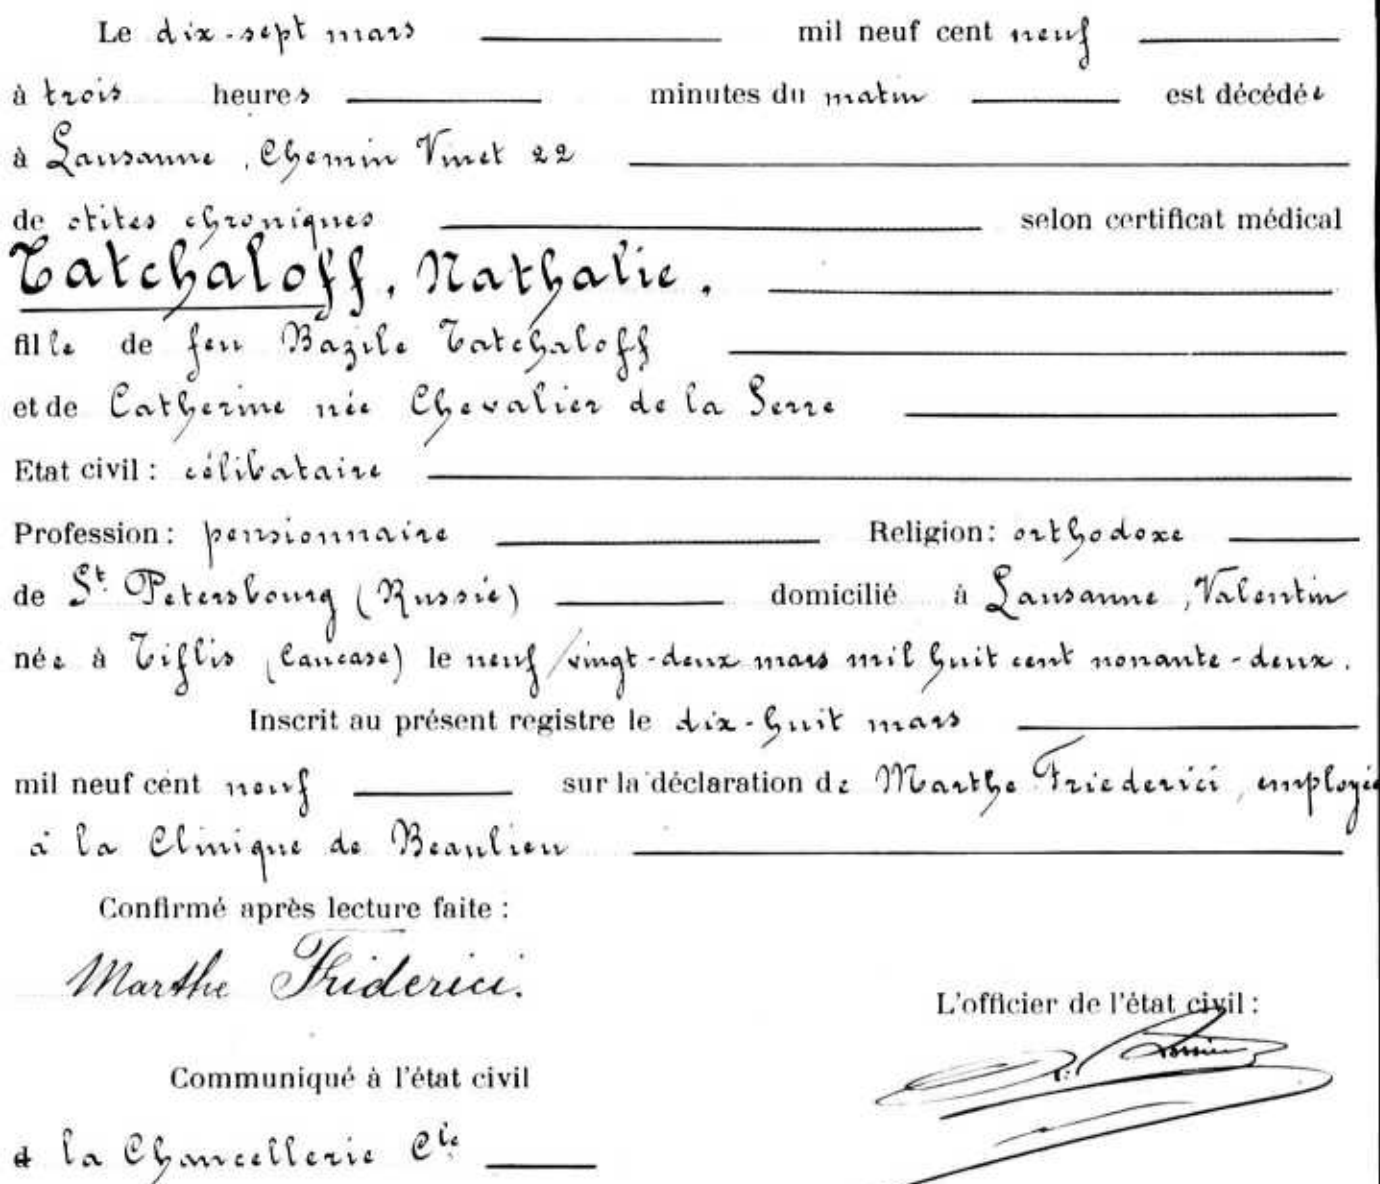 Le dix-sept mars mil neuf cent neuf
à trois heures minutes du matin est décédée
à Lausanne, Chemin Vinet 22
de otites chroniques selon certificat médical
Tatchaloff, Nathalie.
fille de feu Bazile Tatchaloff
et de Catherine née Chevalier de la Serre
Etat civil : célibataire
Profession : pensionnaire Religion : orthodoxe
de St. Petersbourg (Russie) domicilié à Lausanne, Valentin
née à Tiflis (Caucase) le neuf/vingt-deux mars mil huit cent nonante-deux.
Inscrit au présent registre le dix-huit mars
mil neuf cent neuf sur la déclaration de Marthe Friederici, employée
à la Clinique de Beaulieu
Confirmé après lecture faite :
Marthe Friderici.
L'officier de l'état civil :
Communiqué à l'état civil
à la Chancellerie Cle